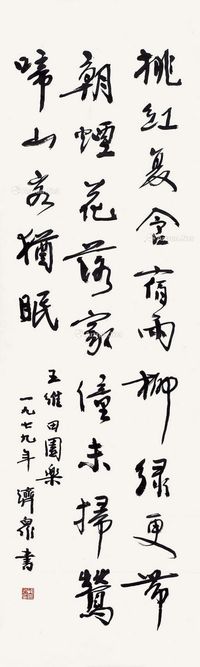 桃红夏含宿雨柳绿更带
朝烟花落家僮未掃鶯
啼山客猶眠
王維田園樂
一九七九年濟泉書